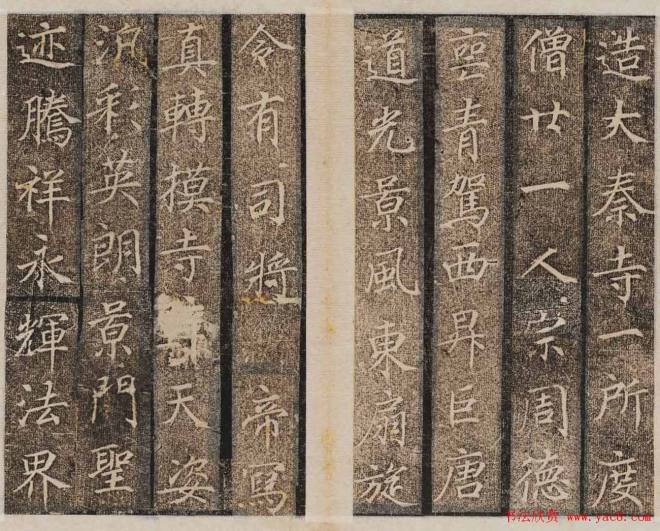 造大秦寺一所度
僧廿一人宗周德
喪青駕西昇巨唐
道光景風東扇旋
令有司將帝寫
真轉摸寺天姿
汎彩英朗景門聖
迹騰祥永輝法界
书法欣赏 www.yac8.com